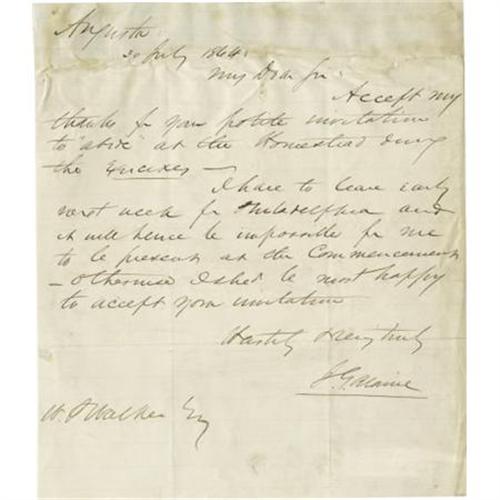 Augusta
30 July 1864.
My Dear Sir:
Accept my
thanks for your polite invitation
to "abide" at the Homestead during
the Exercises —
I have to leave early
next week for Philadelphia and
it will hence be impossible for me
to be present at the Commencement
— otherwise I shd. be most happy
to accept your invitation
Hastily Very truly
J G Blaine
W. P Walker Esq